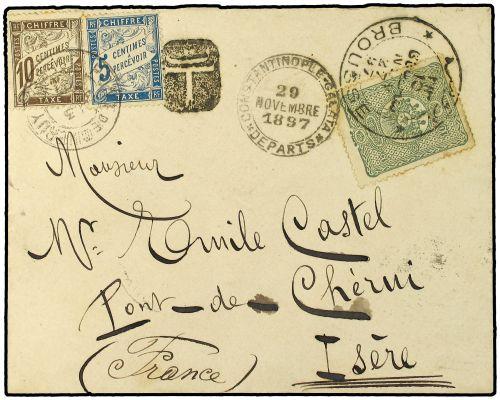 CHIFFRE CHIFFRE
10 CENTIMES A PERCEVOIR 5 CENTIMES A PERCEVOIR
POSTES RF POSTES RF
TAXE TAXE
T
CONSTANTINOPLE-GALATA
29
NOVEMBRE
1897
DEPARTS
BROUSSE
Monsieur
Mr. Emile Castel
Pont-de-Chérui
(France) Isère